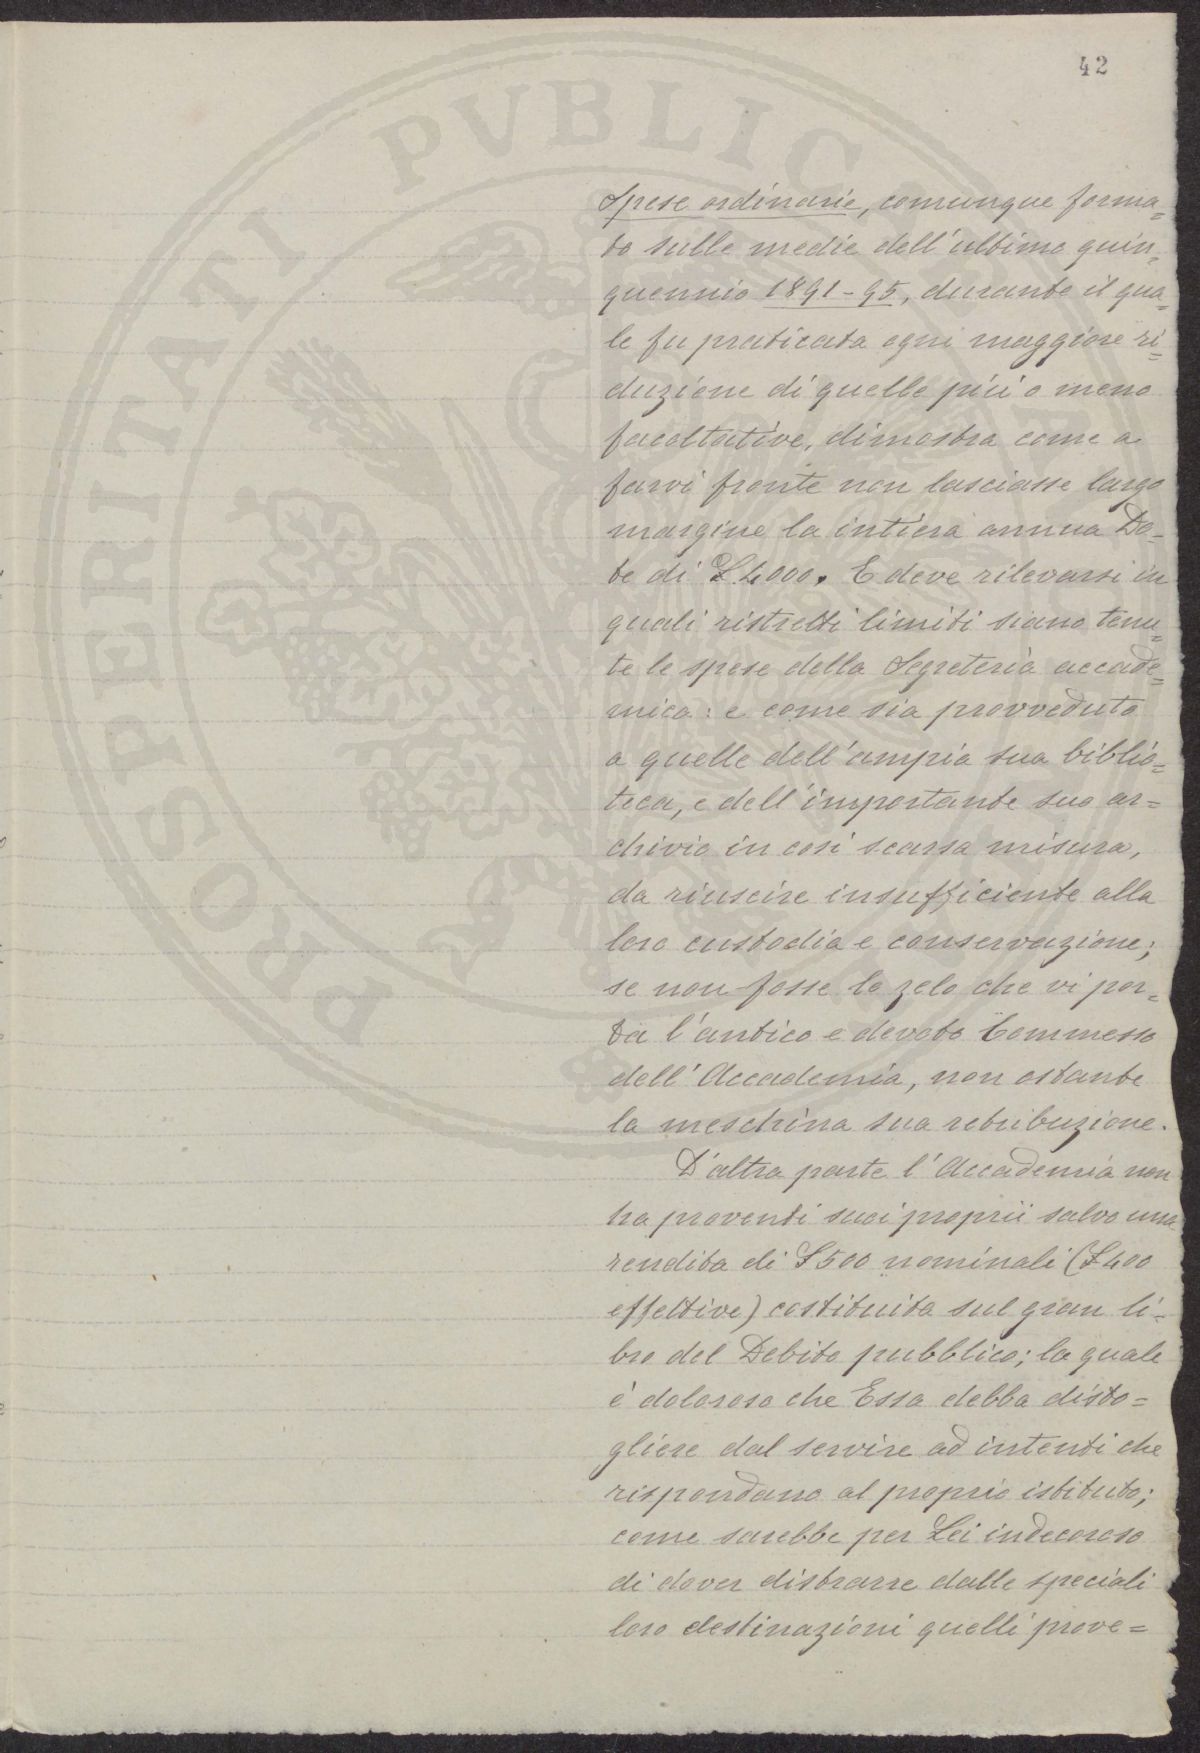 42
PROSPERITATI PVBLIC
Spese ordinarie, comunque forma=
to sulle medie dell'ultimo quin=
quennio 1891-95, durante il qua=
le fu praticata ogni maggiore ri=
duzione di quelle più o meno
facoltative, dimostra come a
farvi fronte non lasciasse largo
margine la intiera annua Do-
te di £ 4000. E deve rilevarsi in
quali ristretti limiti siano tenu=
te le spese della Segreteria accade=
mica: e come sia provveduto
a quelle dell'ampia sua biblio=
teca, e dell'importante suo ar=
chivio in così scarsa misura,
da riuscire insufficiente alla
loro custodia e conservazione;
se non fosse lo zelo che vi por=
ta l'antico e devoto Commesso
dell'Accademia, non ostante
la meschina sua retribuzione.
D'altra parte l'Accademia non
ha proventi suoi proprii salvo una
rendita di £ 500 nominali (£ 400
effettive) costituita sul gran li=
bro del Debito pubblico; la quale
è doloroso che Essa debba disto=
gliere dal servire ad intenti che
rispondano al proprio istituto;
come sarebbe per Lei indecoroso
di dover distrarre dalle speciali
loro destinazioni quelli prove=